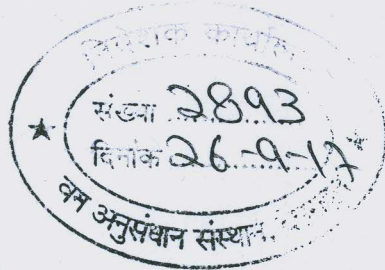 निदेशक कार्यालय
संख्या 2893
दिनांक 26-9-17
वन अनुसंधान संस्थान,